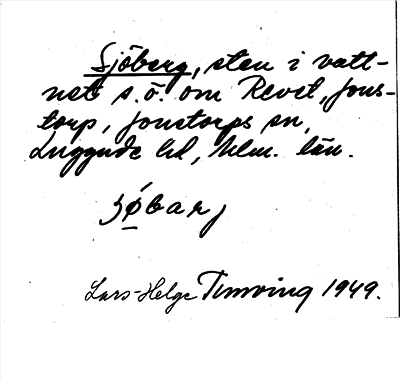 Sjöberg, sten i vatt-
net s.ö. om Revet, Jons-
torp, Jonstorps sn,
Luggude hd, Mlm. län.
Lars-Helge Timving 1949.